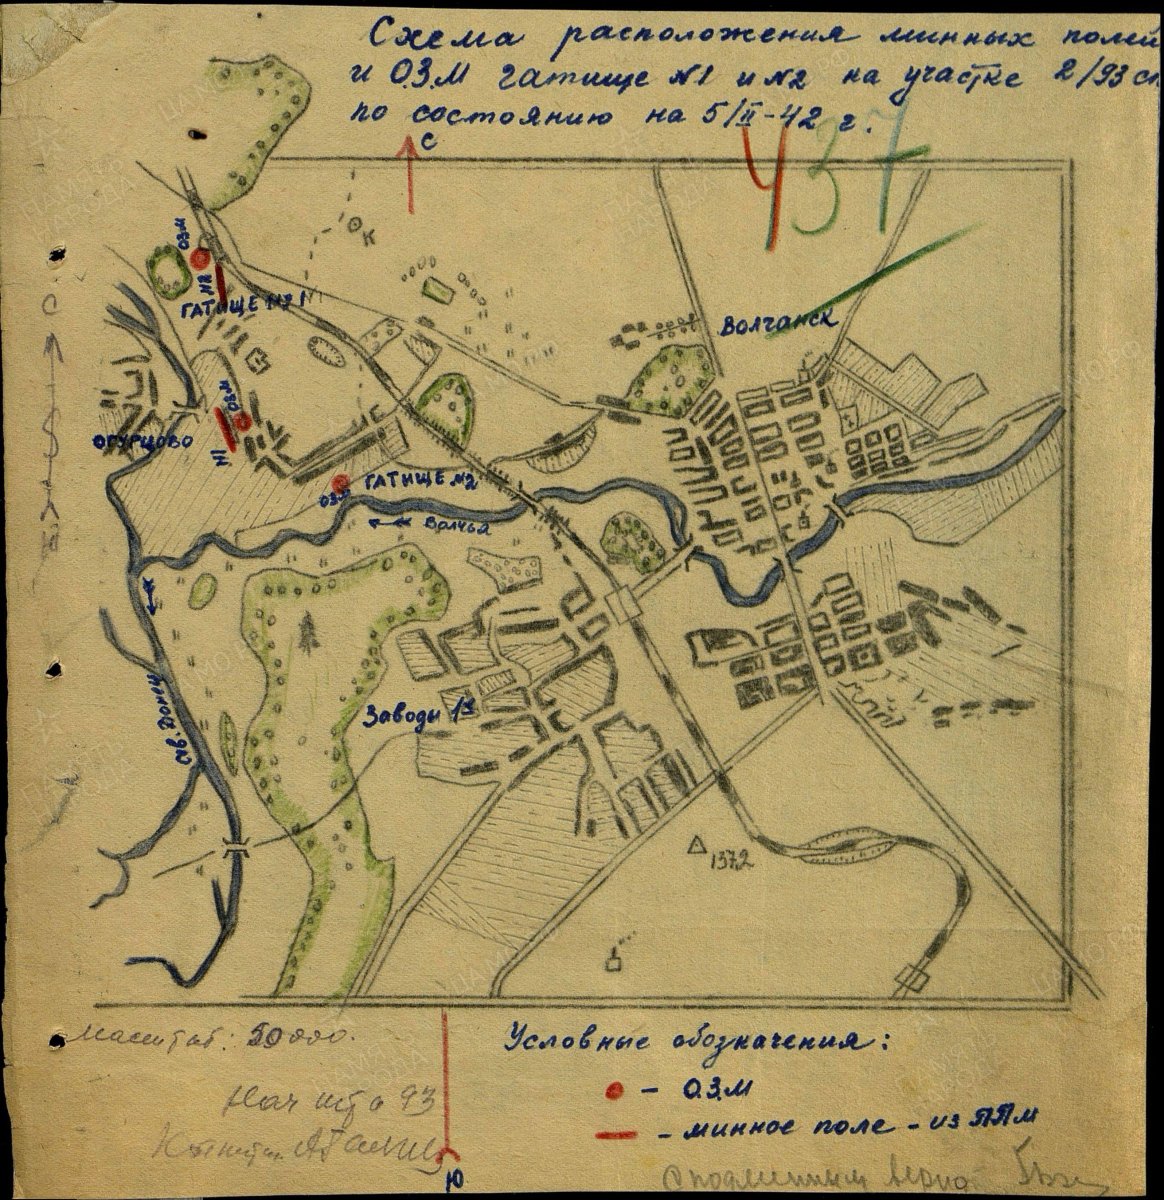 Схема расположения минных полей
и О.З.М гатище №1 и №2 на участке 2/93 сп
по состоянию на 5/II-42 г.
437
С
ОЗМ
№2
ГАТИЩЕ №1
ВОЛЧАНСК
ОЗМ
№1
ОГУРЦОВО
ГАТИЩЕ №2
ОЗМ
Волчья
Заводы 1й
Св. Донец
137,2
Масштаб: 50000.
Условные обозначения:
- О.З.М
- минное поле - из ППМ
Нач шта 93
Капитан
С подлинным верно
Ю